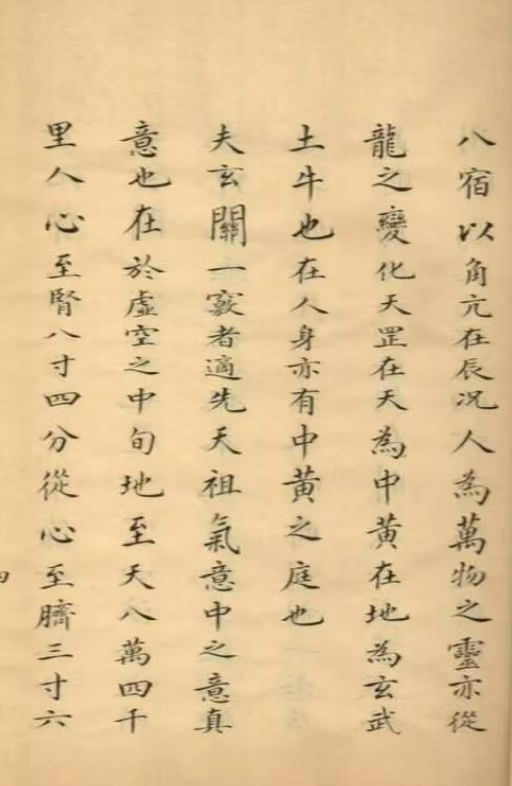 八宿以角亢在辰况人為萬物之靈亦從
龍之變化天罡在天為中黃在地為玄武
土牛也在人身亦有中黃之庭也
夫玄關一竅者適先天祖氣意中之意真
意也在於虛空之中旬地至天八萬四千
里人心至腎八寸四分從心至臍三寸六